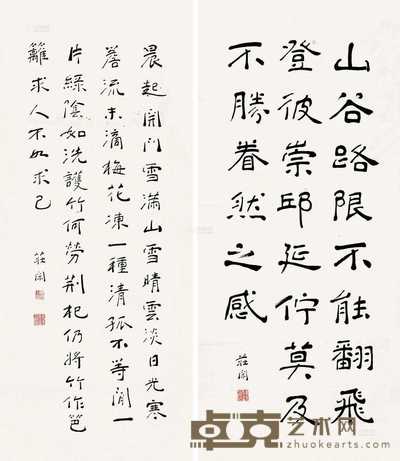 山谷路限不能翻飛
登彼崇邱延佇莫及
不勝眷然之感
莊閑
晨起開門雪滿山雪晴雲淡日光寒
簷流未滴梅花凍一種清孤不等閑一
片綠陰如洗護竹何勞荊杞仍將竹作笆
籬求人不如求己
莊閑
卓克艺术网
zhuokearts.com